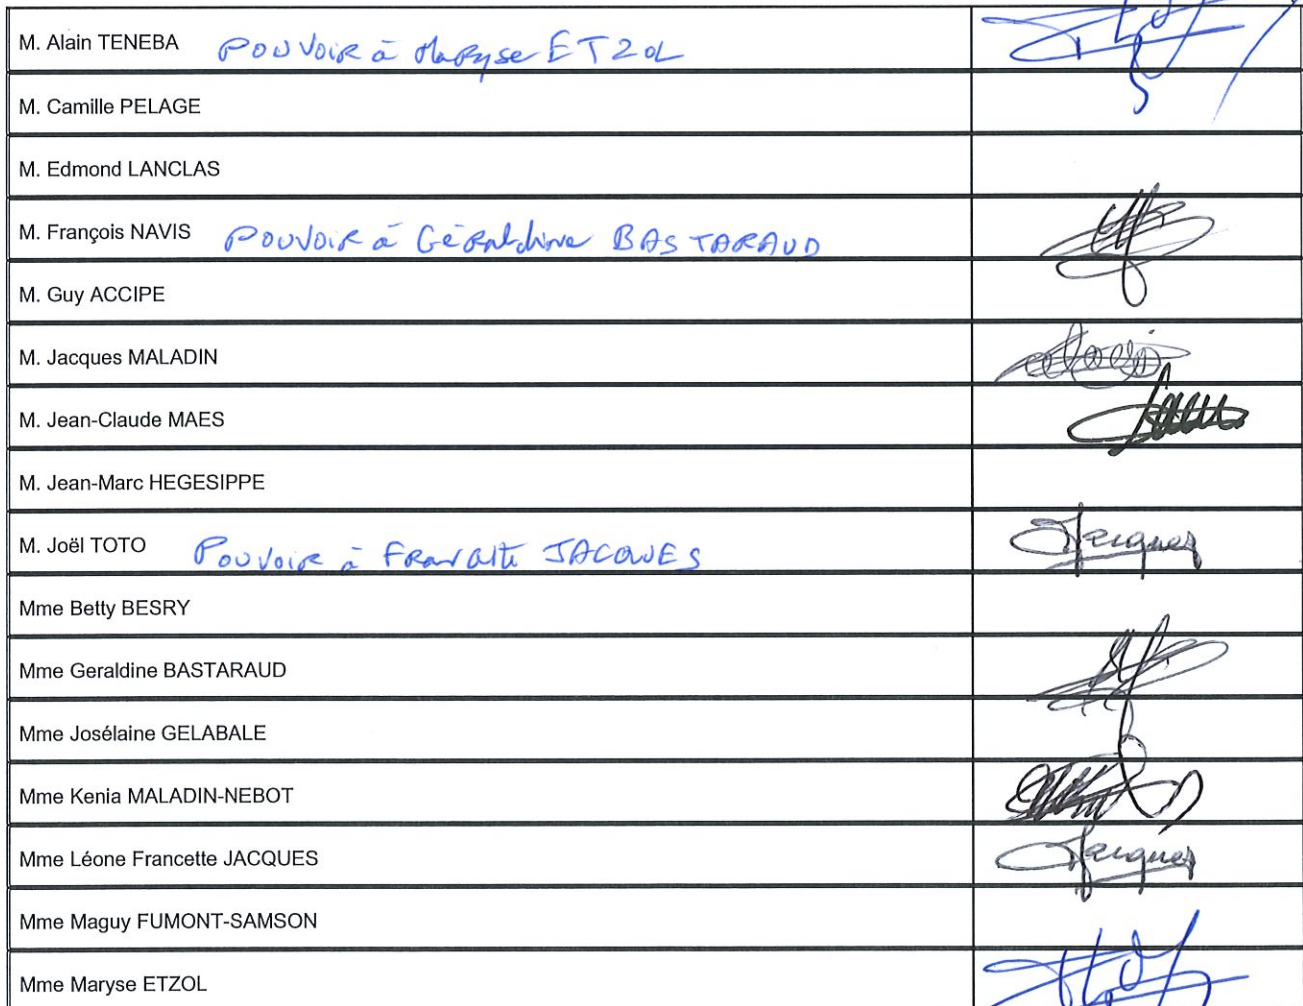 M. Alain TENEBA Pouvoir à Maryse ETZOL
M. Camille PELAGE
M. Edmond LANCLAS
M. François NAVIS Pouvoir à Géraldine BASTARAUD
M. Guy ACCIPE
M. Jacques MALADIN
M. Jean-Claude MAES
M. Jean-Marc HEGESIPPE
M. Joël TOTO Pouvoir à JACQUES
Jacques
Mme Betty BESRY
Mme Geraldine BASTARAUD
Mme Josélaine GELABALE
Mme Kenia MALADIN-NEBOT
Mme Léone Francette JACQUES
Jacques
Mme Maguy FUMONT-SAMSON
Mme Maryse ETZOL